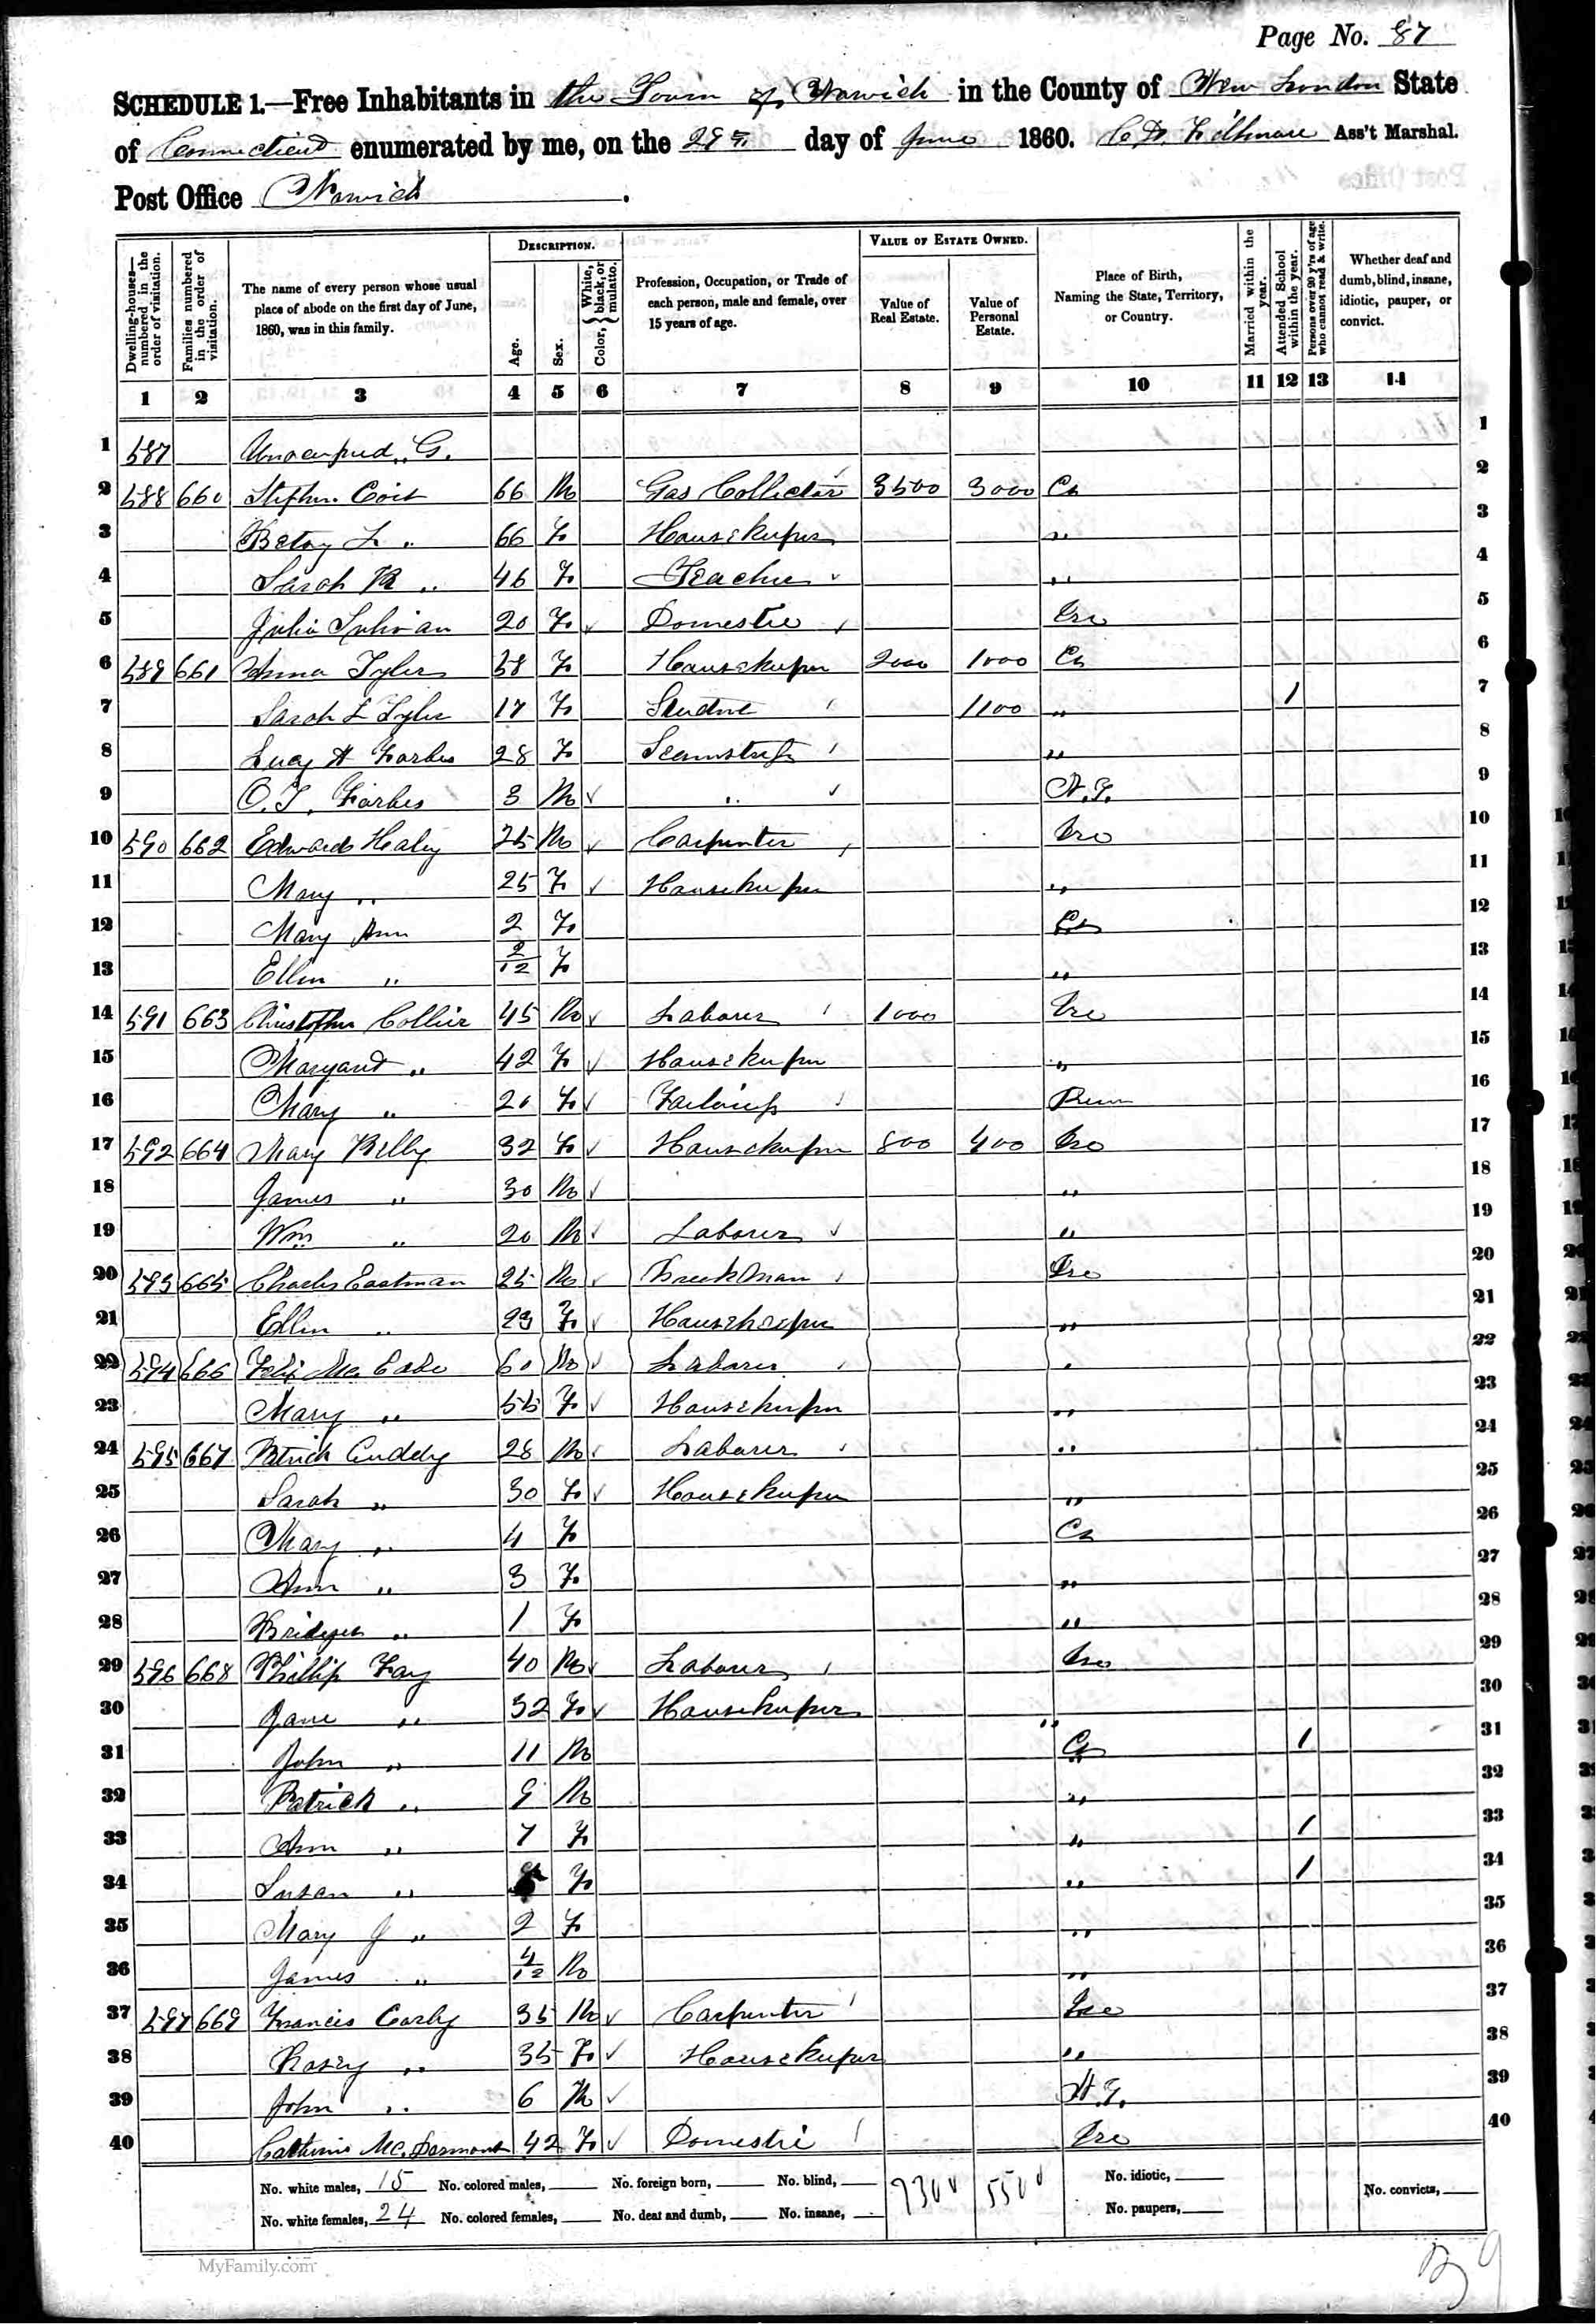 Page No. 87
SCHEDULE 1.—Free Inhabitants in the Town of Norwich in the County of New London State
of Connecticut enumerated by me, on the 29th day of June 1860. Ass't Marshal.
Post Office Norwich.
DESCRIPTION. VALUE OF ESTATE OWNED.
Dwelling-houses—numbered in the order of visitation.
Families numbered in the order of visitation.
The name of every person whose usual place of abode on the first day of June, 1860, was in this family.
Age.
Sex.
Color, { White, black, or mulatto.
Profession, Occupation, or Trade of each person, male and female, over 15 years of age.
Value of Real Estate.
Value of Personal Estate.
Place of Birth, Naming the State, Territory, or Country.
Married within the year.
Attended School within the year.
Persons over 20 y'rs of age who cannot read & write.
Whether deaf and dumb, blind, insane, idiotic, pauper, or convict.
1 2 3 4 5 6 7 8 9 10 11 12 13 14
1 587 Unoccupied 1
2 588 660 Stephen Coit 66 M Gas Collector 3500 3000 Ct 2
3 Betsy L " 66 F Housekeeper " 3
4 Sarah " 46 F Teacher " 4
5 Julia Sulivan 20 F Domestic Ire 5
6 589 661 Anna Tyler 58 F Housekeeper 2000 1000 Ct 6
7 Sarah L Tyler 17 F Student 1100 " 1 7
8 Lucy A Forbes 28 F Seamstress " 8
9 O. T. Forbes 3 M " N.Y. 9
10 590 662 Edward Healy 25 M Carpenter Ire 10
11 Mary " 25 F Housekeeper " 11
12 Mary Ann 2 F Ct 12
13 Ellen " 2/12 F " 13
14 591 663 Christopher Collier 45 M Laborer 1000 Ire 14
15 Margaret " 42 F Housekeeper " 15
16 Mary " 20 F 16
17 592 664 Mary 32 F Housekeeper 800 400 Ire 17
18 James " 30 M " 18
19 Wm " 20 M Laborer " 19
20 593 665 Charles Eastman 25 M Ire 20
21 Ellen " 23 F Housekeeper " 21
22 594 666 Felix McCabe 60 M Laborer " 22
23 Mary " 55 F Housekeeper " 23
24 595 667 Patrick Cuddy 28 M Laborer " 24
25 Sarah " 30 F Housekeeper " 25
26 Mary " 4 F Ct 26
27 Ann " 3 F " 27
28 Bridget " 1 F " 28
29 596 668 Phillip Fay 40 M Laborer Ire 29
30 Jane " 32 F Housekeeper " 30
31 John " 11 M Ct 1 31
32 Patrick " 9 M " 32
33 Ann " 7 F " 1 33
34 Susan " F " 1 34
35 Mary J " 2 F " 35
36 James " 4/12 M " 36
37 597 669 Francis Corby 35 M Carpenter Ire 37
38 Rosey " 35 F Housekeeper " 38
39 John " 6 M N.Y. 39
40 Catherine McDermont 42 F Domestic Ire 40
No. white males, 15 No. colored males, No. foreign born, No. blind, 7300 5500 No. idiotic, No. convicts,
No. white females, 24 No. colored females, No. deaf and dumb, No. insane, No. paupers,
MyFamily.com